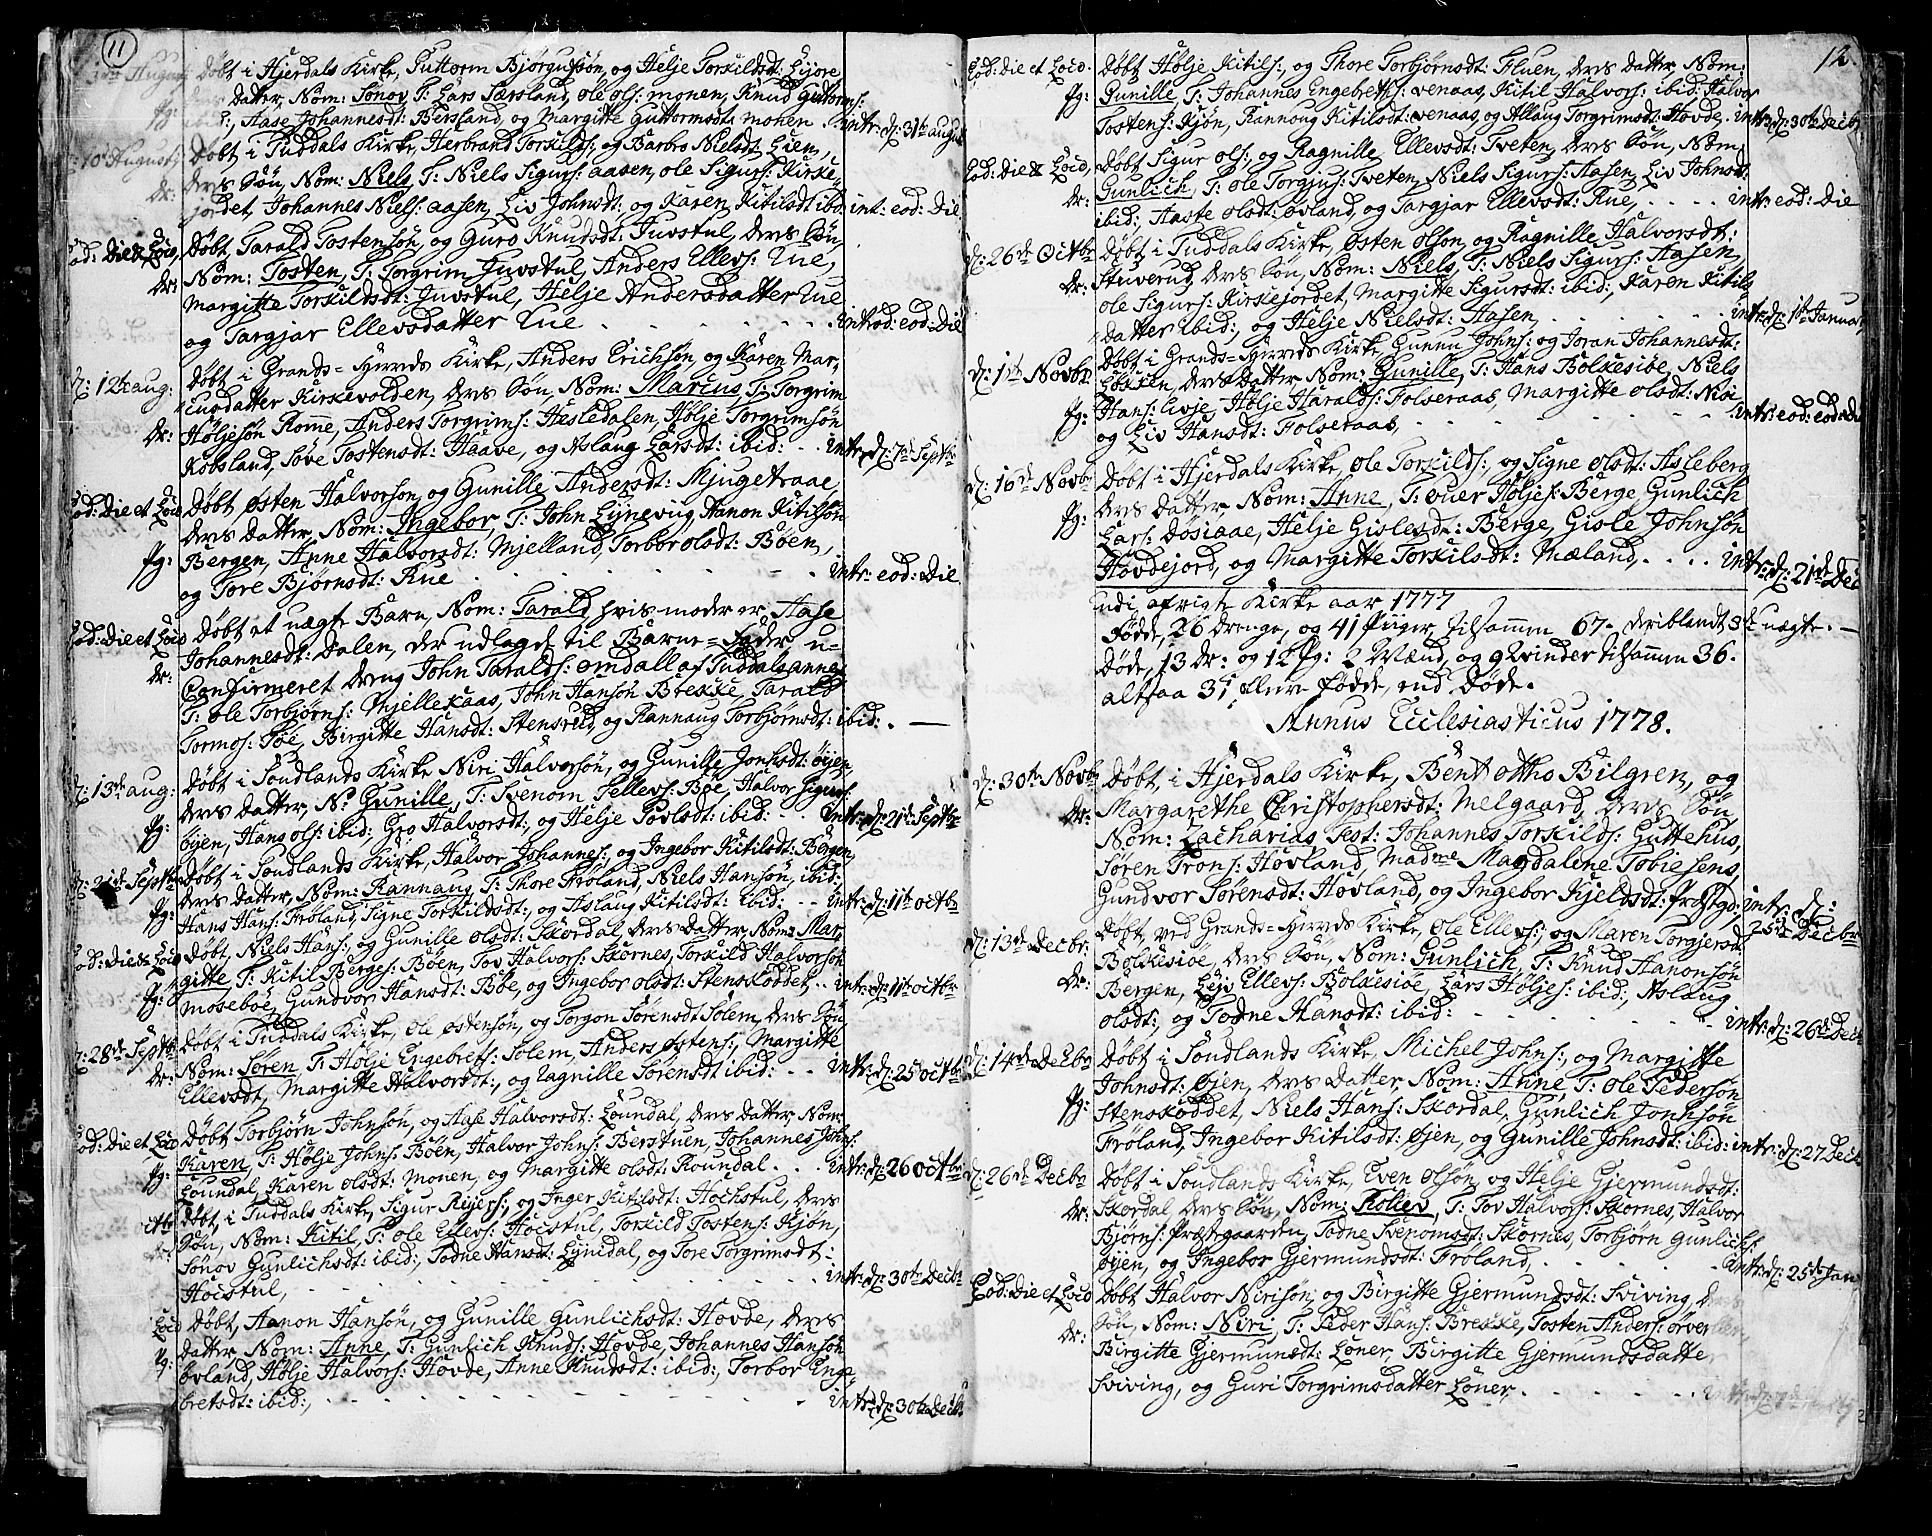 11
Døbt i Hjerdals Kirke, Guttorm Bjørgulsøn, og Helje Torkildsdt: Lyore,
Datter, Nom: Sønov, T: Lars Særsland, ole ols: monen, Knud Guttorms:
pg: ibid:, Aase Johannesdt: Bersland, og Margitte Guttormsdt: mohen . intr: d: 31te august
10de Augusti Døbt i Tuddals Kirke, Herbrand Torkilds: og Barbro Nielsdt: Lien,
dr: ders Søn, Nom: Niels, T: Niels Sigurs: aasen, ole Sigurs: Kirke-
jordet, Johannes Niels: aasen, Liv Johnsdt:, og Karen Kitilsdt: ibid: int: eod: Die
Eod: Die & Loco, Døbt, Tarald Tostensøn, og Guro Knudsdt: Juvstul, ders Søn,
dr: Nom: Tosten, T: Torgrim Juvstul, Anders Ellevs: Lue,
Margitte Torkildsdt: Juvstul, Helje Andersdatter Lue
og Targjær Ellevsdatter Lue introd: eod: Die
d: 12te aug: Døbt i Grands-Herreds Kirke, Anders Erichsøn, og Karen Mar-
cusdatter Kirkevolden, ders Søn, Nom: Marcus, T: Torgrim
dr: Høljesøn Romme, Anders Torgrims: Hesledalen, Hølje Torgrimsøn
Kobsland, Søve Tostensdt: Haave, og Aslaug Larsdt: ibid: . . intr: d: 7de Septbr
Eod: Die et Loco Døbt Østen Halvorsøn, og Gunille Andersdt: Mjugetraae
ders Datter, Nom: Ingebor, T: John Lynevig, Hanon Kitilsøn
pg: Bergen, Anne Halvorsdt: Mjelland, Torbor olsdt: Bøen,
og Tore Bjørnsdt: Rue intr: eod: Die
Eod: Die et Loco Døbt et uægte Barn, Nom: Tarald, hvis moder er Aase
Johannesdt: Dalen, der udlagde til Barne-Fader u-
dr: Confirmeret dreng John Taralds: omdall af Tuddals annex
T: ole Torbjørns: Mjellekaas, John Hansøn Brekke, Tarald
Tormos: Bøe, Birgitte Hansdt: Stensrud, og Rannaug Torbjørnsdt: ibid: . —
d: 13de aug: Døbt i Sondlands Kirke Niri Halvorsøn, og Gunille Jonhsdt: øijen,
ders Datter, N: Gunille, T: Svenom Sellevs: Bøe, Halvor Sigurs:
pg: øijen, Hans ols: ibid:, Gro Halvorsdt:, og Helje Povlsdt: ibid: . . intr: d: 21de Septbr
d: 21de Septbr Døbt i Sondlands Kirke, Halvor Johannes:, og Ingebor Kitilsdt: Bergen,
ders Datter, Nom: Rannaug, T: Thore Frøland, Niels Hansøn, ibid:
pg: Hans Hans: Frøland, Signe Torkildsdt:, og Aslaug Kitilsdt: ibid: . . intr: d: 11te octbr
Eod: Die & Loco Døbt, Niels Hans:, og Gunille olsdt: Skordal, ders Datter, Nom: Mar-
gitte, T: Kitil Berges: Bøen, Tov Halvors: Skornes, Torkild Halvorsøn
pg: Mosebøe, Gundvor Hansdt: Bøe, og Ingebor olsdt: Stenskoddet, . . intr: d: 11te octbr
d: 28de Septbr Døbt i Tuddals Kirke, ole østensøn, og Torgon Sørensdt Solem, ders Søn
dr: Nom: Søren, T: Hølje Engebrets: Solem, Anders østens:, Margitte
Ellevsdt, Margitte Halvorsdt:, og Ragnille Sørensdt ibid: . . intr: d: 25 octbr
Eod: Die et Loco Døbt Torbjørn Johnsøn, og Aase Halvorsdt: Loundal, ders Datter, Nom:
pg: Karen, T: Hølje Johns: Bøen, Halvor Johns: Berstuen, Johannes Johns:
Loundal, Karen olsdt: Monen, og Margitte olsdt: Roundal . . . intr: d: 26 octbr
octbr Døbt, i Tuddals Kirke, Sigur Reyers:, og Inger Kitilsdt: Hochstul, ders
Søn, Nom: Kitil, T: ole Ellevs: Hocstul, Torkild Tostens: Kjøn,
Sønov Gunlichsdt: ibid:, Todne Hansdt: Lynedal, og Tore Torgrimsdt:
Hocstul, intr: d: 30te Decbr
Loco Døbt, Hanon Hansøn, og Gunille Gunlichsdt: Hovde, ders
pg: Datter, Nom: Anne, T: Gunlich Knuds: Hovde, Johannes Hansøn
øvland, Hølje Halvors: Hovde, Anne Knudsdt: ibid:, Torbor Enge-
bretsdt: ibid:, intr: d: 30te Decbr
12.
Eod: die et Loco. Døbt Hølje Kitils:, og Thore Torbjørnsdt: Fluen, ders Datter, Nom:
pg: Gunille, T: Johannes Engebrets: venaas, Kitil Halvors: ibid: Halvor
Tostens: Kjøn, Rannoug Kitilsdt: venaas, og Allaug Torgrimsdt: Hovde . intr: d: 30te Decbr
Eod: Die & Loco, Døbt Sigur ols:, og Ragnille Ellevsdt: Tveten, ders Søn, Nom:
dr: Gunlich, T: ole Torgjus: Tveten, Niels Sigurs: Aasen, Liv Johnsdt:
ibid:, Aaste olsdt: øvland, og Targjær Ellevsdt: Rue, . . . . intr: eod: Die
d: 26de Octbr Døbt i Tuddals Kirke, østen olsøn, og Ragnille Halvorsdt:
dr: Stuverud, ders Søn, Nom: Niels, T: Niels Sigurs: Aasen,
ole Sigurs: Kirkejordet, Margitte Sigursdt: ibid:, Karen Kitils-
datter ibid:, og Helje Nielsdt: Aasen, intr: d: 1te Januar
d: 1te Novbr Døbt i Grands-Herreds Kirke, Gunnu Johns: og Joran Johannesdt:
Løkken, ders Datter Nom: Gunille, T: Hans Bolkesiøe, Niels
pg: Hans: Lvje, Hølje Haralds: Folseraas, Margitte olsdt: Nisi
og Liv Hansdt: Folseraas, intr: eod: eod: die
d: 16de Novbr Døbt i Hjerdals Kirke, ole Torkilds:, og Signe olsdt: Asleberg
ders Datter, Nom: Anne, T: øuer Høljes: Berge, Gunlich
pg: Lars: Døsiaae, Helje Gislesdt: Berge, Gisle Johnsøn
Hovdejord, og Margitte Torkilsdt: Mæland, . . . . intr: d: 21de Dec
udi afvigte Kirke aar 1777
Fødde, 26 drenge, og 41 Piiger, tilsamm 67. deriblandt 3de uægte. —
Døde, 13 dr: og 12 Pg: 2 Mænd, og 9 Qvinder tilsamm 36.
altsaa 31 flere Fødde, end Døde.
Annus Ecclesiasticus 1778.
d: 30te Novbr Døbt, i Hjerdals Kirke, Bent ottho Bilgren, og
dr: Margarethe Christophersdt: Melgaard, ders Søn,
Nom: Zacharias Test: Johannes Torkilds: Guttehus,
Søren Frons: Hovland, Madme Magdalene Tobiesens,
Gundvor Sørensdt: Hovland, og Ingebor Kjeldsdt: Præstgd: intr: d: 25de Decbr
d: 13de Decbr: Døbt, ved Grands-Herreds Kirke, ole Ellevs:, og Maren Torgjersdt:
Bolkesiøe, ders Søn, Nom: Gunlich, T: Knud Hanonsøn
dr: Bergen, Lejv Ellevs: Bolkesiøe, Lars Høljes: ibid:, Aslaug
olsdt:, og Todne Hansdt: ibid: intr: d: 26de Decbr
d: 14de Decbr Døbt i Sondlands Kirke, Michel Johns:, og Margitte
pg: Johnsdt: øjen, ders Datter, Nom: Anne, T: ole Pedersøn
Stenskoddet, Niels Hans: Skordal, Gunlich Jonhsøn
Frøland, Ingebor Kitilsdt: øjen, og Gunille Johnsdt: ibid: intr: d: 27 Decbr
d: 26de Decbr Døbt i Sondlands Kirke, Even olsøn, og Helje Gjermundsdt:
dr: Skordal, ders Søn, Nom: Rollev, T: Tov Halvors: Skornes, Halvor
Bjørns: Præstegaarden, Todne Svenomsdt: Skornes, Torbjørn Gunlichs:
øijen, og Ingebor Gjermundsdt: Frøland, intr: d: 25de Jan
Eod: Die et Loco Døbt Halvor Nirisøn, og Birgitte Gjermundsdt: Sviving, ders
dr: Søn, Nom: Niri, T: Peder Hans: Brekke, Tosten Anders: ørver
Birgitte Gjermunsdt: Løner, Birgitte Gjermundsdatter
Sviving, og Guri Torgrimsdatter Løner, intr: d: